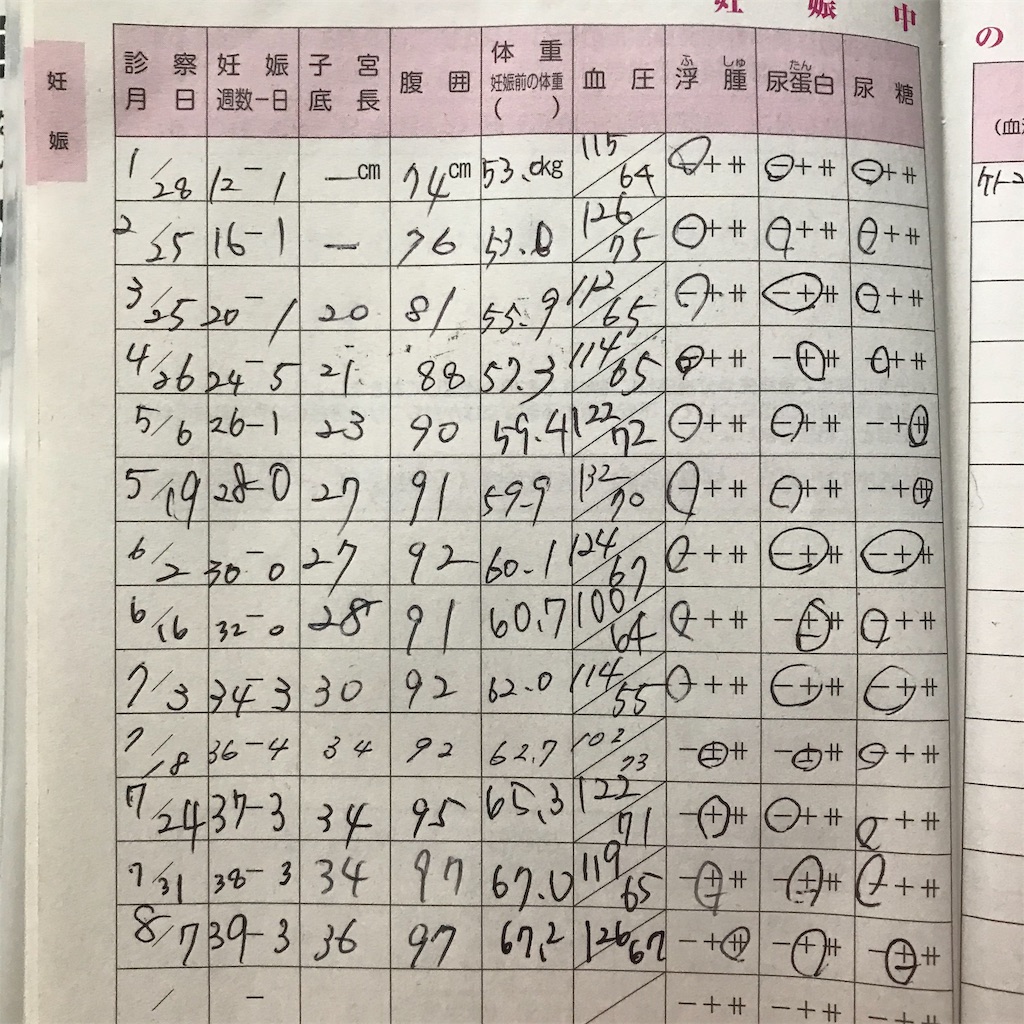 妊娠中
の
妊娠
診察月日 妊娠週数-日 子宮底長 腹囲 体重 妊娠前の体重 ( ) 血圧 浮腫 ふしゅ 尿蛋白 たん 尿糖
1/28 12-1 —cm 74cm 53.0kg 115/64 -+⧺ -+⧺ -+⧺
2/25 16-1 — 76 53.0 126/75 -+⧺ -+⧺ -+⧺
3/25 20-1 20 81 55.9 112/65 -+⧺ -+⧺ -+⧺
4/26 24-5 21 88 57.3 114/65 -+⧺ -+⧺ -+⧺
5/6 26-1 23 90 59.4 122/72 -+⧺ -+⧺ -+⧺
5/19 28-0 27 91 59.9 132/70 -+⧺ -+⧺ -+⧺
6/2 30-0 27 92 60.1 124/67 -+⧺ -+⧺ -+⧺
6/16 32-0 28 91 60.7 100/64 -+⧺ -+⧺ -+⧺
7/3 34-3 30 92 62.0 114/55 -+⧺ -+⧺ -+⧺
7/18 36-4 34 92 62.7 102/73 -+⧺ -+⧺ -+⧺
7/24 37-3 34 95 65.3 122/71 -+⧺ -+⧺ -+⧺
7/31 38-3 34 97 67.0 119/65 -+⧺ -+⧺ -+⧺
8/7 39-3 36 97 67.2 126/67 -+⧺ -+⧺ -+⧺
/ - / -+⧺ -+⧺ -+⧺